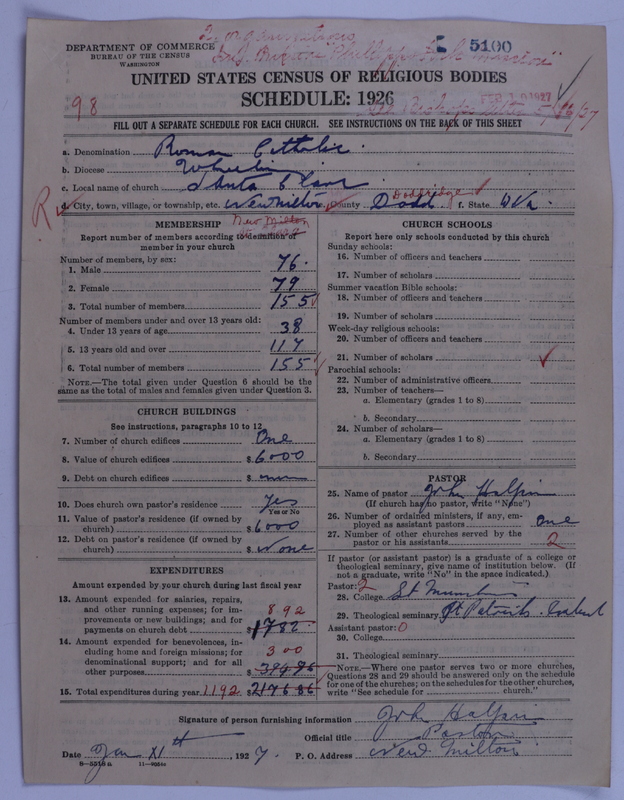 2 organizations
5100
DEPARTMENT OF COMMERCE
BUREAU OF THE CENSUS
WASHINGTON
UNITED STATES CENSUS OF RELIGIOUS BODIES
98
SCHEDULE: 1926
FILL OUT A SEPARATE SCHEDULE FOR EACH CHURCH. SEE INSTRUCTIONS ON THE BACK OF THIS SHEET
a. Denomination Roman Catholic
b. Diocese
c. Local name of church Santa Clara
R d. City, town, village, or township, etc. New Milton County Dodd Doddridge f. State W Va
MEMBERSHIP New Milton
Report number of members according to definition of
member in your church
Number of members, by sex:
1. Male 76
2. Female 79
3. Total number of members 155
Number of members under and over 13 years old:
4. Under 13 years of age 38
5. 13 years old and over 117
6. Total number of members 155
NOTE.—The total given under Question 6 should be the
same as the total of males and females given under Question 3.
CHURCH BUILDINGS
See instructions, paragraphs 10 to 12
7. Number of church edifices One
8. Value of church edifices $ 6000
9. Debt on church edifices $
10. Does church own pastor's residence Yes
Yes or No
11. Value of pastor's residence (if owned by
church) $ 6000
12. Debt on pastor's residence (if owned by
church) $ None
EXPENDITURES
Amount expended by your church during last fiscal year
13. Amount expended for salaries, repairs,
and other running expenses; for im- 892
provements or new buildings; and for
payments on church debt $ 1782
14. Amount expended for benevolences, in-
cluding home and foreign missions; for 300
denominational support; and for all
other purposes $
15. Total expenditures during year 1192 $
CHURCH SCHOOLS
Report here only schools conducted by this church
Sunday schools:
16. Number of officers and teachers
17. Number of scholars
Summer vacation Bible schools:
18. Number of officers and teachers
19. Number of scholars
Week-day religious schools:
20. Number of officers and teachers
21. Number of scholars
Parochial schools:
22. Number of administrative officers
23. Number of teachers—
a. Elementary (grades 1 to 8)
b. Secondary
24. Number of scholars—
a. Elementary (grades 1 to 8)
b. Secondary
PASTOR
25. Name of pastor John Halpin
(If church has no pastor, write "None")
26. Number of ordained ministers, if any, em-
ployed as assistant pastors One
27. Number of other churches served by the
pastor or his assistants 2
If pastor (or assistant pastor) is a graduate of a college or
theological seminary, give name of institution below. (If
not a graduate, write "No" in the space indicated.)
Pastor: 2
28. College St
29. Theological seminary St Patricks
Assistant pastor: 0
30. College
31. Theological seminary
NOTE.—Where one pastor serves two or more churches,
Questions 28 and 29 should be answered only on the schedule
for one of the churches; on the schedules for the other churches,
write "See schedule for church."
Signature of person furnishing information John Halpin
Official title Pastor
Date Jan XI th, 1927. P. O. Address New Milton
8—5518a 11—9056a